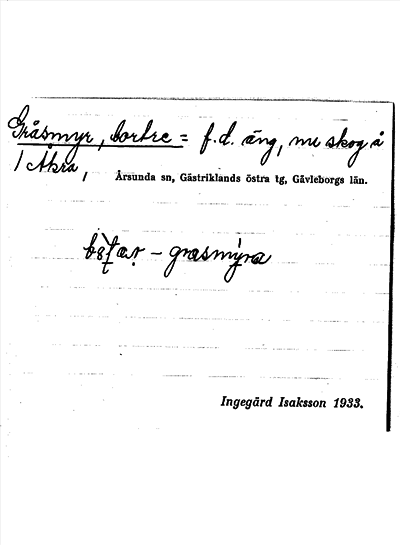 Gråsmyr, bortre = f.d. äng, nu skog å
1 Åkra,
Årsunda sn, Gästriklands östra tg, Gävleborgs län.
grasmyra
Ingegärd Isaksson 1933.